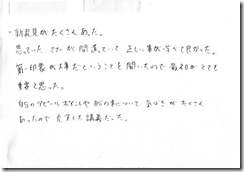 ・新発見がたくさんあった。
思っていたマナーが間違っていて正しい事が学べて良かった。
第一印象が大事だということを聞いたので最初がとても
重要と思った。
自分のアピールポイントや私の事について気づきがたくさん
あったので充実した講義だった。